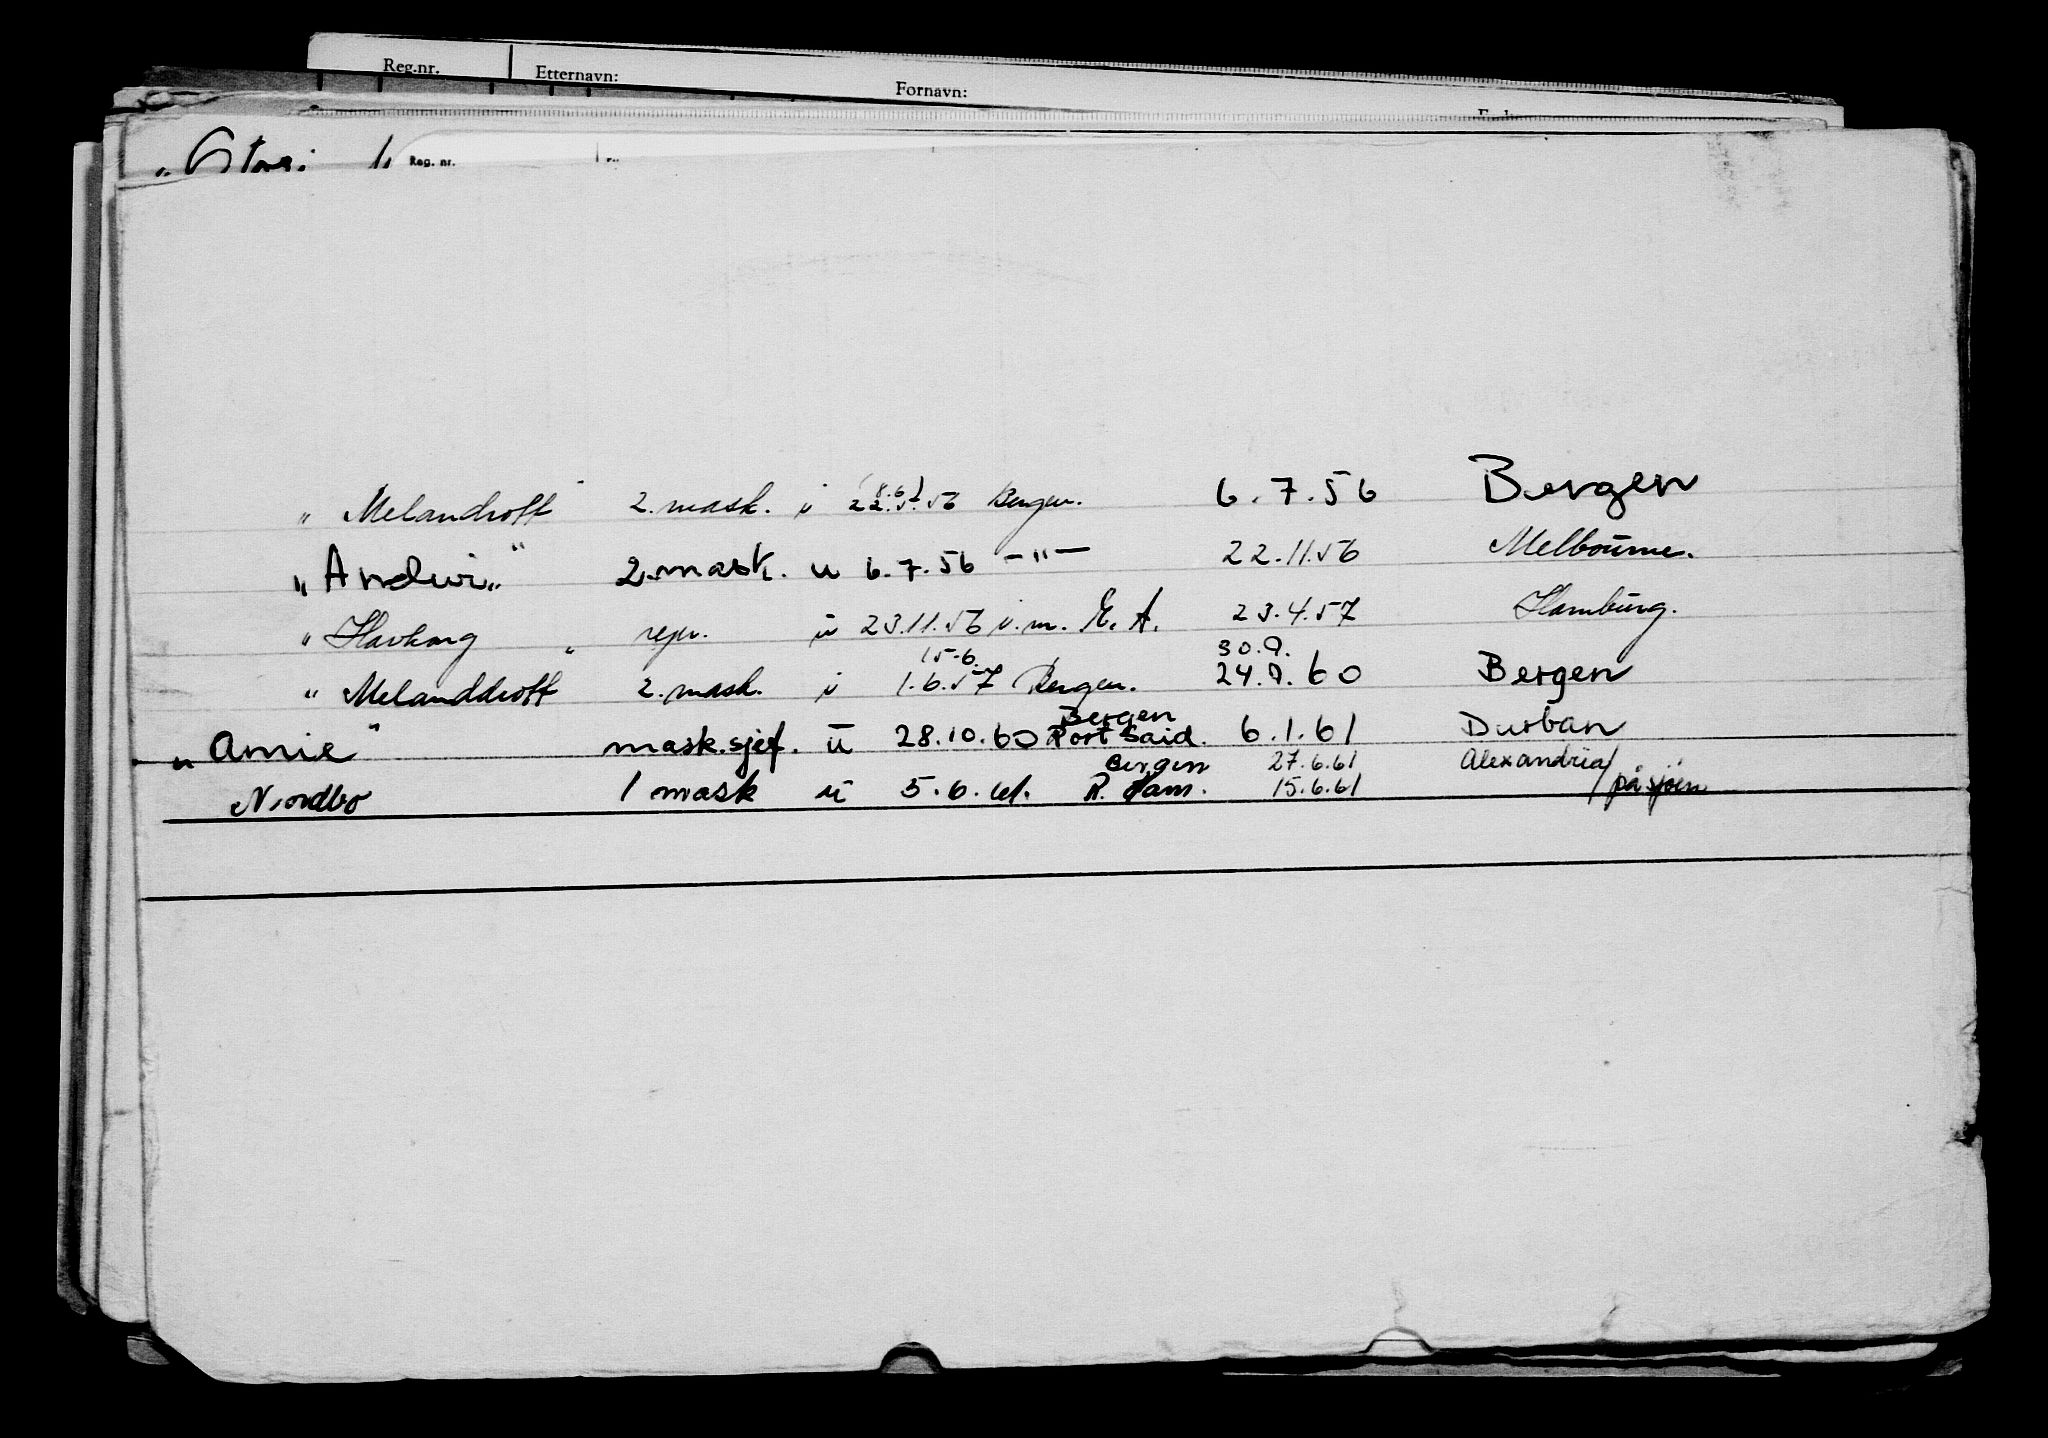 Reg.nr. Etternavn: Fornavn:
Reg. nr.
" Melandroth " 2. mask. i (8.6) 22.5.56 Bergen. 6.7.56 Bergen
"Andwi" 2.mask. u 6.7.56 -"- 22.11.56 Melbourne.
" Havkong " repr. u 23.11.56 i.m. E.A. 23.4.57 Hamburg.
15.6. 30.9.
" Melanddroth 2. mask. i 1.6.57 Bergen. 24.9.60 Bergen
Bergen
"Amie" mask.sjef. u 28.10.60 Port Said. 6.1.61 Durban
Bergen 27.6.61 Alexandria/
Nordbo 1 mask u 5.6.61. 15.6.61 /på sjøen